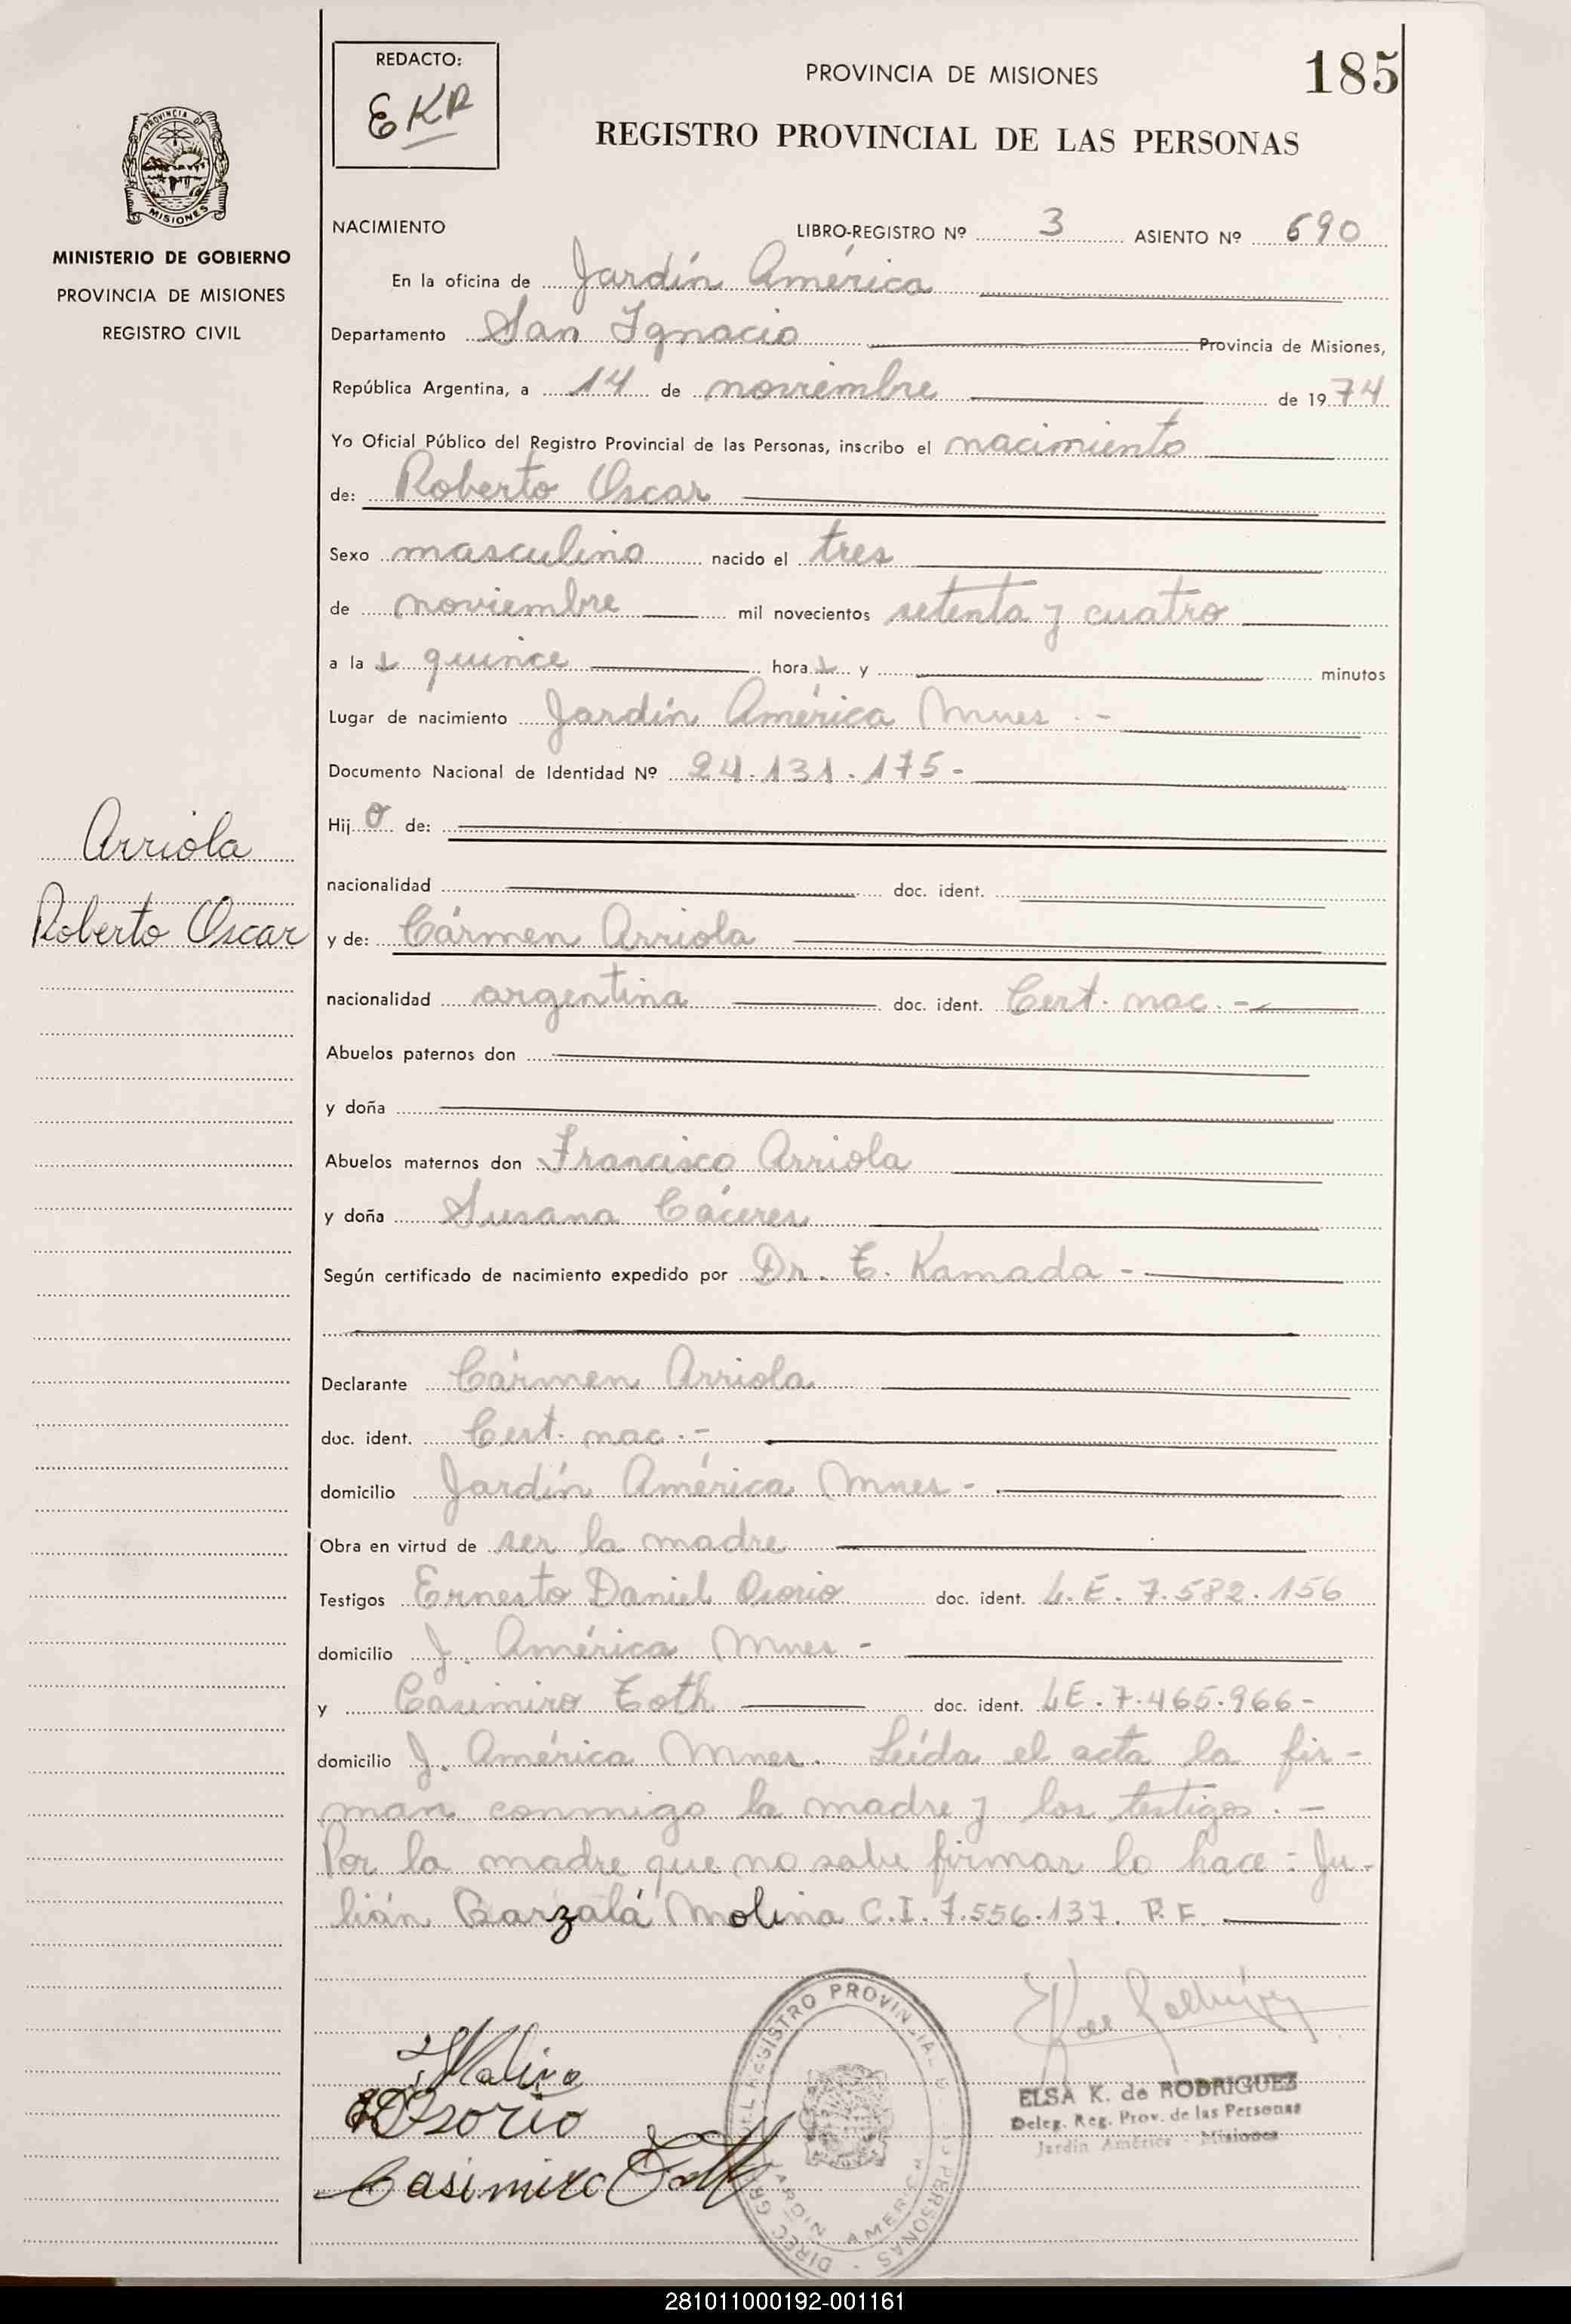 REDACTO:
EKR
PROVINCIA DE MISIONES
185
REGISTRO PROVINCIAL DE LAS PERSONAS
PROVINCIA DE
MISIONES
MINISTERIO DE GOBIERNO
PROVINCIA DE MISIONES
REGISTRO CIVIL
NACIMIENTO LIBRO-REGISTRO Nº 3 ASIENTO Nº 690
En la oficina de Jardín América
Departamento San Ignacio Provincia de Misiones,
República Argentina, a 14 de noviembre de 1974
Yo Oficial Público del Registro Provincial de las Personas, inscribo el nacimiento
de: Roberto Oscar
Sexo masculino nacido el tres
de noviembre mil novecientos setenta y cuatro
a las quince horas y minutos
Lugar de nacimiento Jardín América Mnes.-
Documento Nacional de Identidad Nº 24.131.175-
Hijo de:
Arriola
Roberto Oscar
nacionalidad doc. ident.
y de: Cármen Arriola
nacionalidad argentina doc. ident. Cert. nac.-
Abuelos paternos don
y doña
Abuelos maternos don Francisco Arriola
y doña Susana Cáceres
Según certificado de nacimiento expedido por Dr. T. Kamada-
Declarante Cármen Arriola
doc. ident. Cert. nac.-
domicilio Jardín América Mnes-
Obra en virtud de ser la madre
Testigos Ernesto Daniel Osorio doc. ident. L.E. 7.582.156
domicilio J. América Mnes-
y Casimiro Toth doc. ident. LE. 7.465.966-
domicilio J. América Mnes. Leída el acta la fir-
man conmigo la madre y los testigos.-
Por la madre que no sabe firmar lo hace: Ju-
lián Barzalá Molina C.I. 7.556.137. P.F.
Molina
EDOsorio
Casimiro Toth
DIREC GRAL REGISTRO PROVINCIAL DE LAS PERSONAS
JARDIN AMERICA
ELSA K. de RODRIGUEZ
Deleg. Reg. Prov. de las Personas
Jardín América - Misiones
281011000192-001161